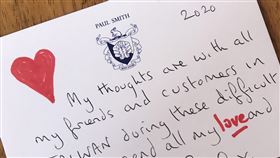 PAUL SMITH
2020
My thoughts are with all
my friends and customers in
TAIWAN during these difficult
send all my love and